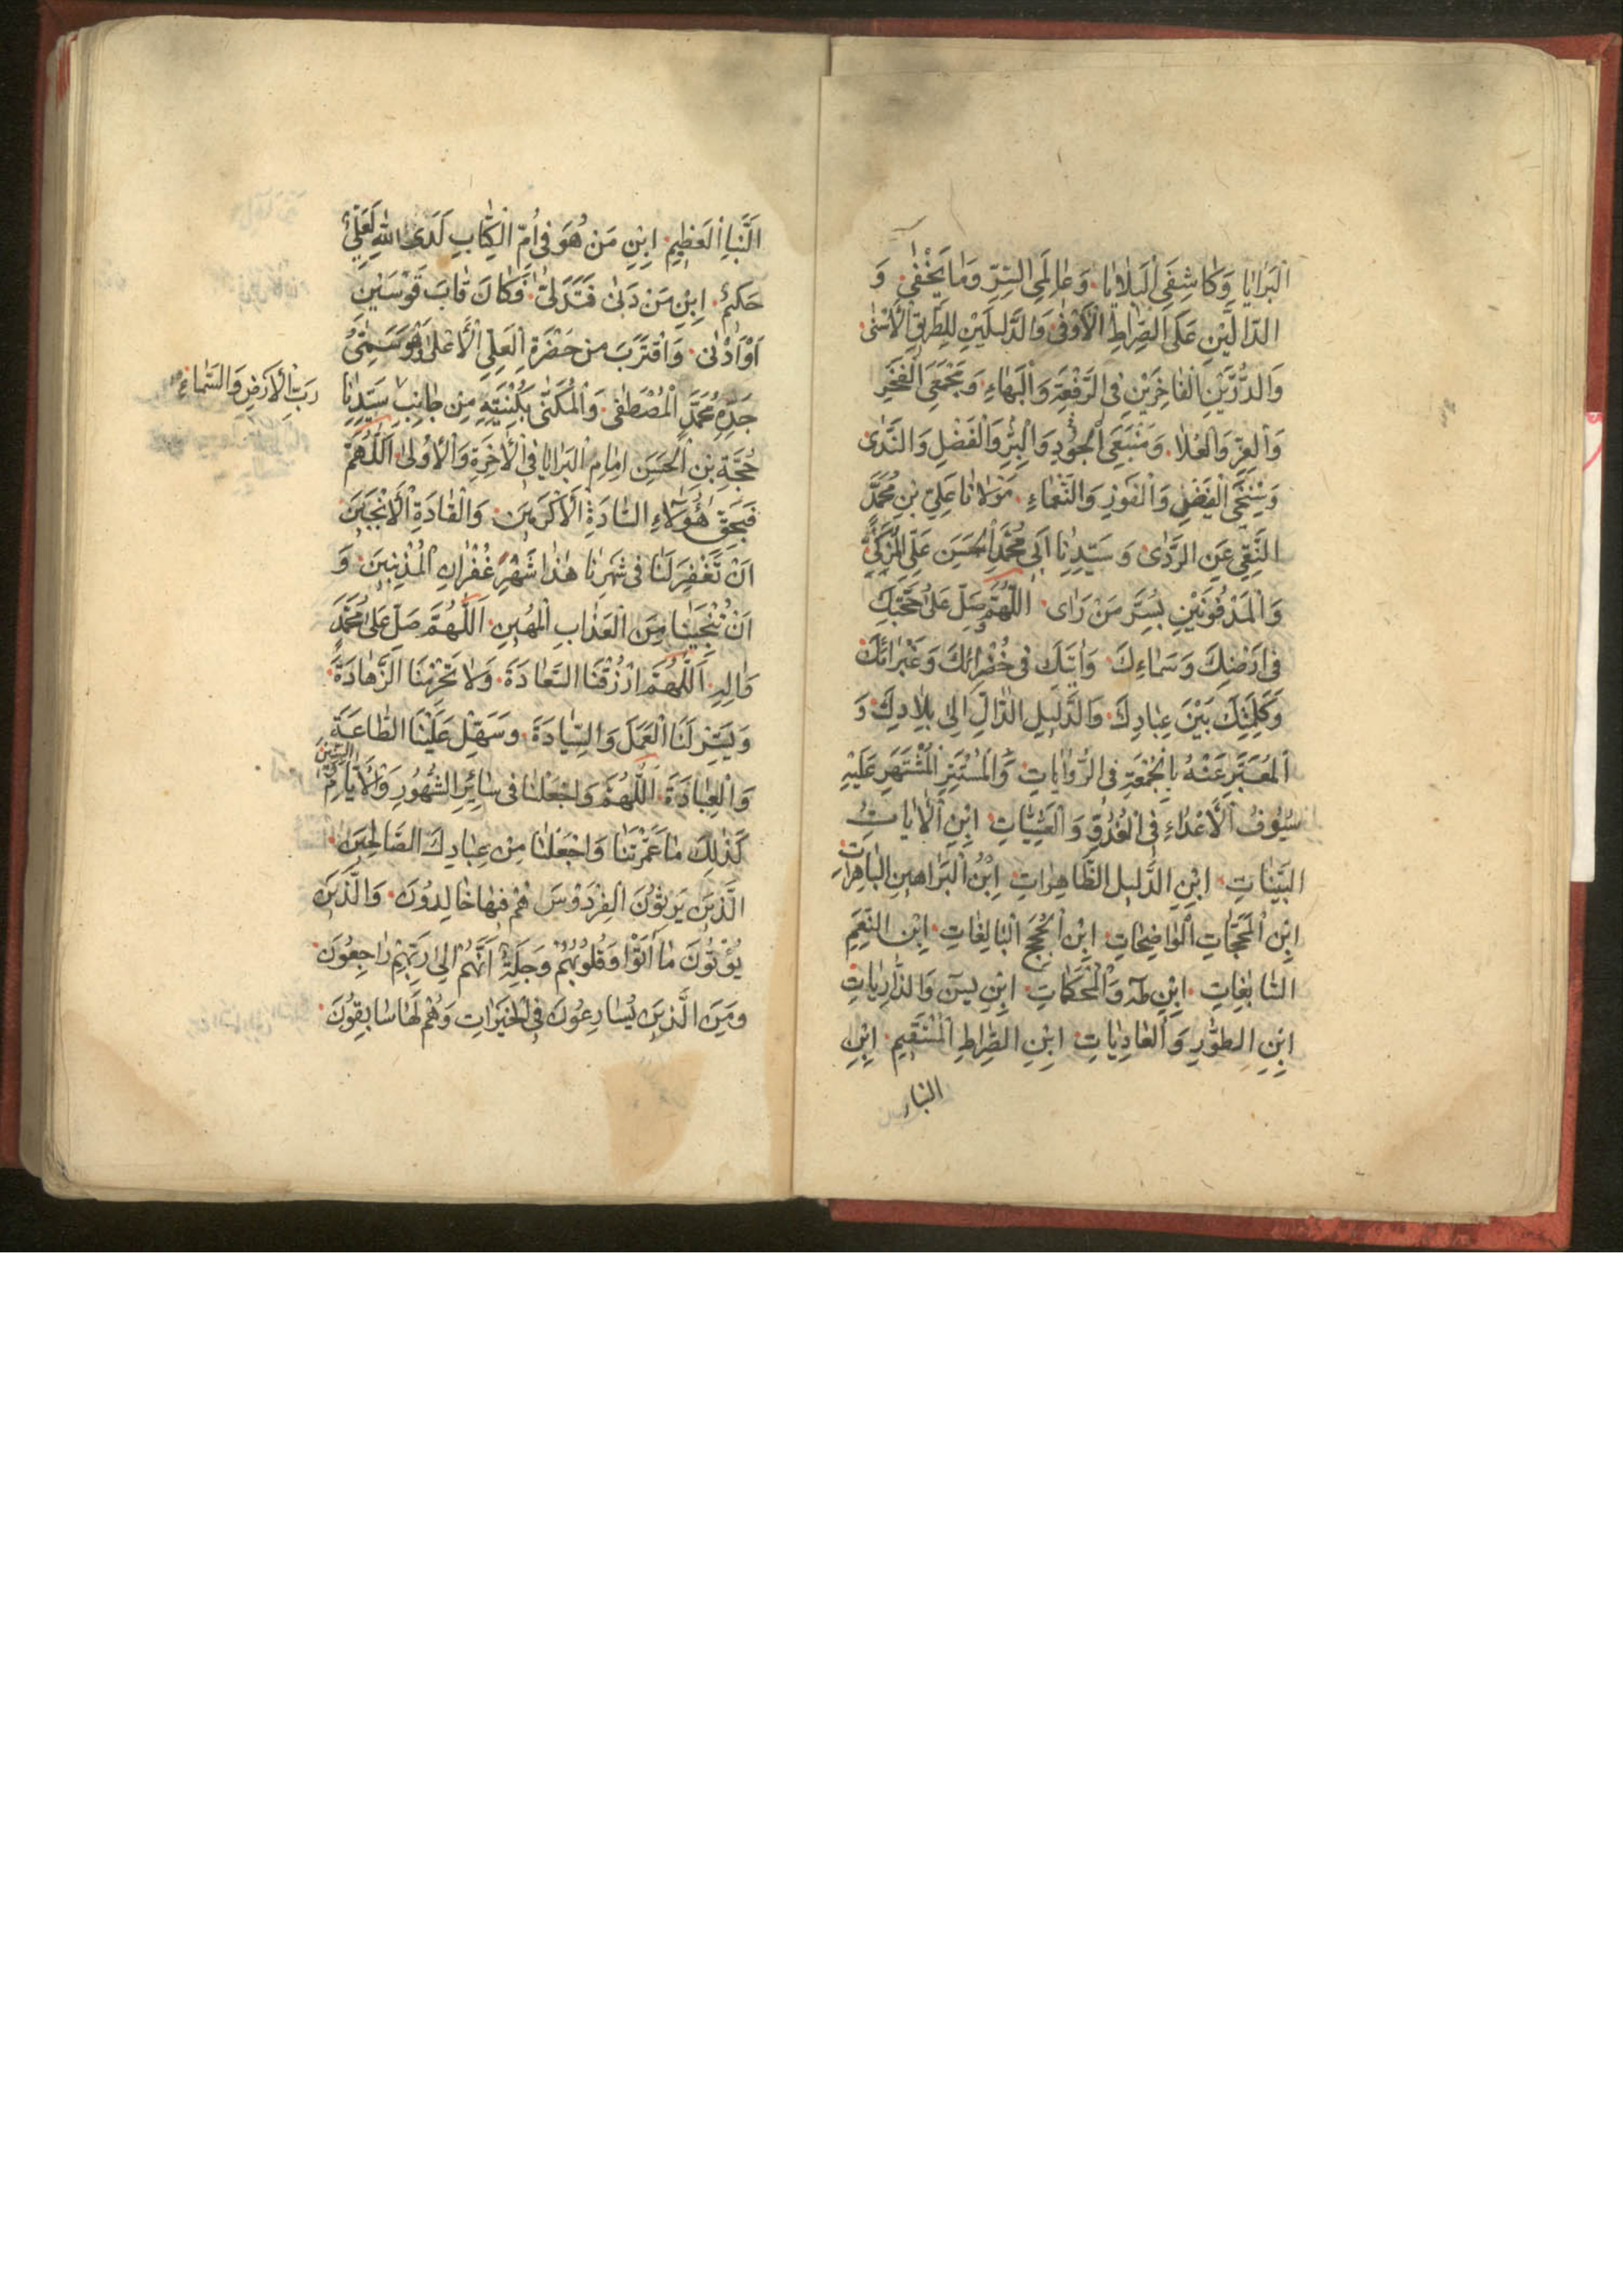 اَلْبَرَايَا وَكَاشِفَىِ الْبَلَايَا وَعَالِمَىِ السِّرِّ وَمَا يَخْفٰى وَ
الدَّالَّيْنِ عَلَى الصِّرَاطِ الْأَوْفٰى وَالدَّلِيلَيْنِ لِلطَّرِيقِ الْأَسْنٰى
وَالدُّرَّيْنِ الْفَاخِرَيْنِ فِى الرِّفْعَةِ وَالْبَهَاءِ وَمَجْمَعَىِ الْفَخْرِ
وَالْعِزِّ وَالْعُلَا وَمَنْبَعَىِ الْجُودِ وَالْبِرِّ وَالْفَضْلِ وَالنَّدٰى
الْفَضْلِ وَالْفَوْزِ وَالنَّعْمَاءِ مَوْلَانَا عَلِىِّ بْنِ مُحَمَّدٍ
النَّقِىِّ عَنِ الرَّدٰى وَسَيِّدِنَا اَبِى مُحَمَّدٍ الْحَسَنِ
وَالْمَدْفُونَيْنِ بِسُرَّ مَنْ رَاٰى اَللّٰهُمَّ صَلِّ عَلٰى حُجَّتِكَ
فِى اَرْضِكَ وَسَمَاءِكَ وَاٰيَتِكَ فِى خَضْرَائِكَ وَغَبْرَائِكَ
وَكَلِمَتِكَ بَيْنَ عِبَادِكَ وَالدَّلِيلِ الدَّالِّ اِلٰى بِلَادِكَ وَ
الْمُعَبَّرِ عَنْهُ بِالْجُمْعَةِ فِى الرِّوَايَاتِ وَالْمُسْتَتِرِ الْمُشْتَهَرِ عَلَيْهِ
سُيُوفُ الْأَعْدَاءِ فِى الْغُدُوِّ وَالْعَشِيَّاتِ اِبْنِ الْاٰيَاتِ
الْبَيِّنَاتِ اِبْنِ الدَّلِيلِ الظَّاهِرَاتِ اِبْنِ الْبَرَاهِينِ الْبَاهِرَاتِ
اِبْنِ الْمَحَجَّاتِ الْوَاضِحَاتِ اِبْنِ الْحُجَجِ الْبَالِغَاتِ اِبْنِ النِّعَمِ
السَّابِغَاتِ اِبْنِ طٰهٰ وَالْمُحْكَمَاتِ اِبْنِ يٰسٓ وَالذَّارِيَاتِ
اِبْنِ الطُّورِ وَالْعَادِيَاتِ اِبْنِ الصِّرَاطِ الْمُسْتَقِيمِ اِبْنِ
النبإ
اَلنَّبَإِ الْعَظِيمِ اِبْنِ مَنْ هُوَ فِى اُمِّ الْكِتَابِ لَدَى اللهِ لَعَلِىٌّ
حَكِيمٌ اِبْنِ مَنْ دَنٰى فَتَدَلّٰى فَكَانَ قَابَ قَوْسَيْنِ
اَوْ اَدْنٰى وَاقْتَرَبَ مِنْ حَضْرَةِ الْعَلِىِّ الْأَعْلٰى هُوَ سَمِىُّ
جَدِّهِ مُحَمَّدٍ الْمُصْطَفٰى وَالْمُكَنّٰى بِكُنْيَتِهِ مِنْ جَانِبِ سَيِّدِنَا
رَبِّ الْأَرْضِ وَالسَّمَاءِ
حُجَّةِ بْنِ الْحَسَنِ اِمَامِ الْبَرَايَا فِى الْاٰخِرَةِ وَالْاُولٰى اَللّٰهُمَّ
فَبِحَقِّ هٰؤُلَاءِ السَّادَةِ الْأَكْرَمِينَ وَالْقَادَةِ الْأَنْجَبِينَ
اَنْ تَغْفِرَ لَنَا فِى شَهْرِنَا هٰذَا شَهْرِ غُفْرَانِ الْمُذْنِبِينَ وَ
اَنْ تُنْجِيَنَا مِنَ الْعَذَابِ الْمُهِينِ اَللّٰهُمَّ صَلِّ عَلٰى مُحَمَّدٍ
وَاٰلِهِ اَللّٰهُمَّ ارْزُقْنَا السَّعَادَةَ وَلَا تَحْرِمْنَا الزَّهَادَةَ
وَيَسِّرْ لَنَا الْعَمَلَ وَالسِّيَادَةَ وَسَهِّلْ عَلَيْنَا الطَّاعَةَ
وَالْعِبَادَةَ اَللّٰهُمَّ وَاجْعَلْنَا فِى سَائِرِ الشُّهُورِ وَالْأَيَّامِ
كَذٰلِكَ مَا عَمَّرْتَنَا وَاجْعَلْنَا مِنْ عِبَادِكَ الصَّالِحِينَ
الَّذِينَ يَرِثُونَ الْفِرْدَوْسَ هُمْ فِيهَا خَالِدُونَ وَالَّذِينَ
يُؤْتُونَ مَا اٰتَوْا وَقُلُوبُهُمْ وَجِلَةٌ اَنَّهُمْ اِلٰى رَبِّهِمْ رَاجِعُونَ
وَمِنَ الَّذِينَ يُسَارِعُونَ فِى الْخَيْرَاتِ وَهُمْ لَهَا سَابِقُونَ